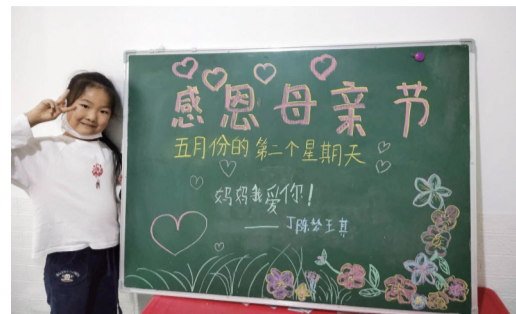 感恩母亲节
五月份的第二个星期天
妈妈我爱你！